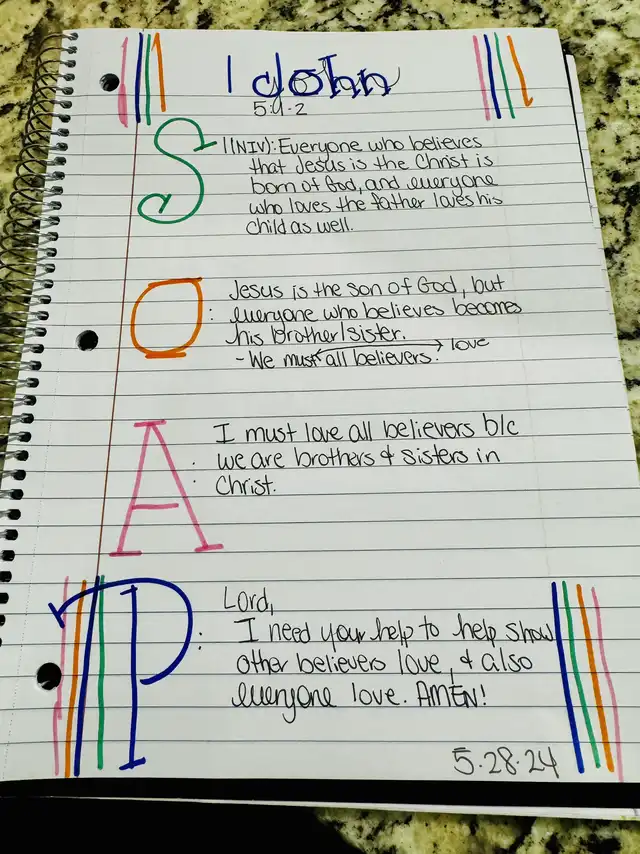 1 John
5:1-2
S 1(NIV): Everyone who believes
that Jesus is the Christ is
born of God, and everyone
who loves the father loves his
child as well.
O : Jesus is the son of God, but
everyone who believes becomes
his brother/sister.
love
- We must all believers.
A : I must love all believers b/c
we are brothers & sisters in
Christ.
P : Lord,
I need your help to help show
other believers love, & also
everyone love. AMEN!
5.28.24